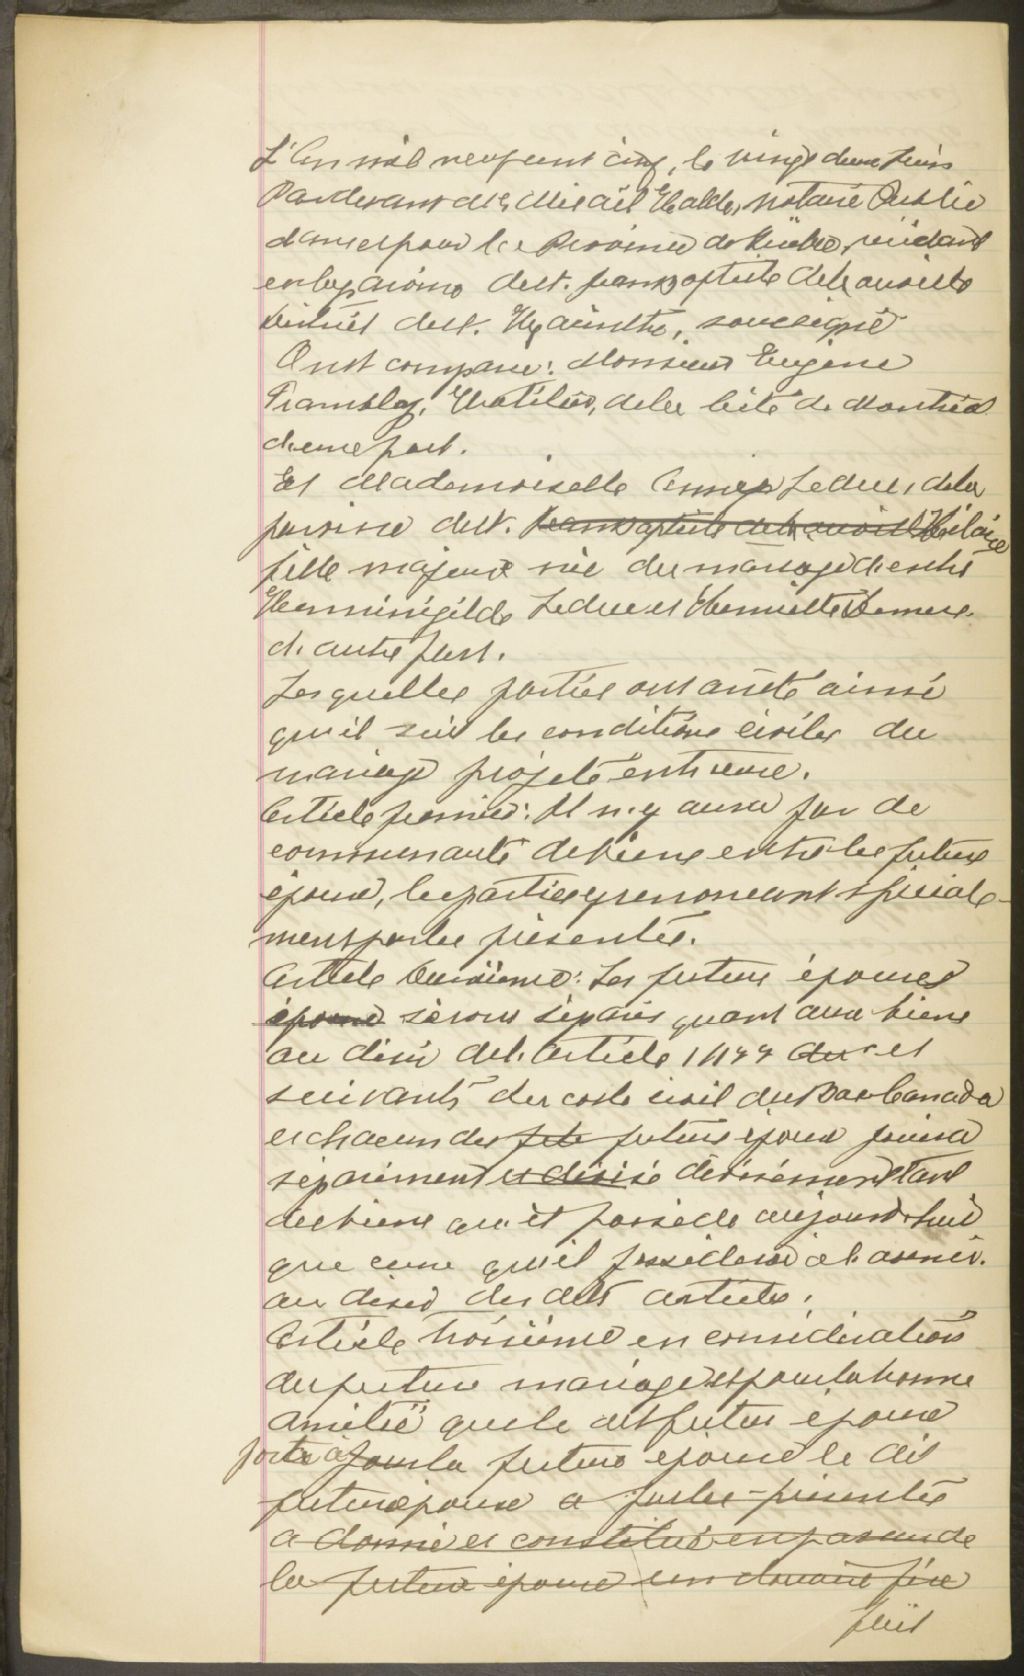 L'An mil neuf cent cinq, le vingt deux Juin
Pardevant Mtre Misaël Halde, notaire Public
dans et pour la Province de Québec, résidant
en la paroisse de St. Jean Baptiste de
district de St. Hyacinthe, soussigné
Ont comparu: Monsieur Eugène
Tramblay, de la Cité de Montréal
d'une part.
Et Mademoiselle Leduc, de la
paroisse de St. Jean Baptiste de Hilaire
fille majeure née du mariage d'entre
Herminigilde Leduc et
d'autre part.
Lesquelles parties ont arrêté ainsi
qu'il suit les conditions civiles du
mariage projeté entr'eux.
Article premier: Il n'y aura pas de
communauté de biens entre les futurs
époux, les parties y renoncant spéciale-
ment par les présentes.
Article Deuxième: Les futurs épouxs
époux seront séparés quant aux biens
au désir de l'article et
suivants du code civil du Bas Canada
et chacun des fut futurs époux jouira
séparément et divisé divisément tant
des biens qu'il possède aujourd'hui
que ceux qu'il possèdera à l'avenir.
au désir des dits articles.
Article troisième en considération
du futur mariage et pour la bonne
amitié que le dit futur époux
porte à pour la future épouse le dit
futur époux a par les présentes
a donné et constitué en faveur de
la future épouse un douaire fixe
fait